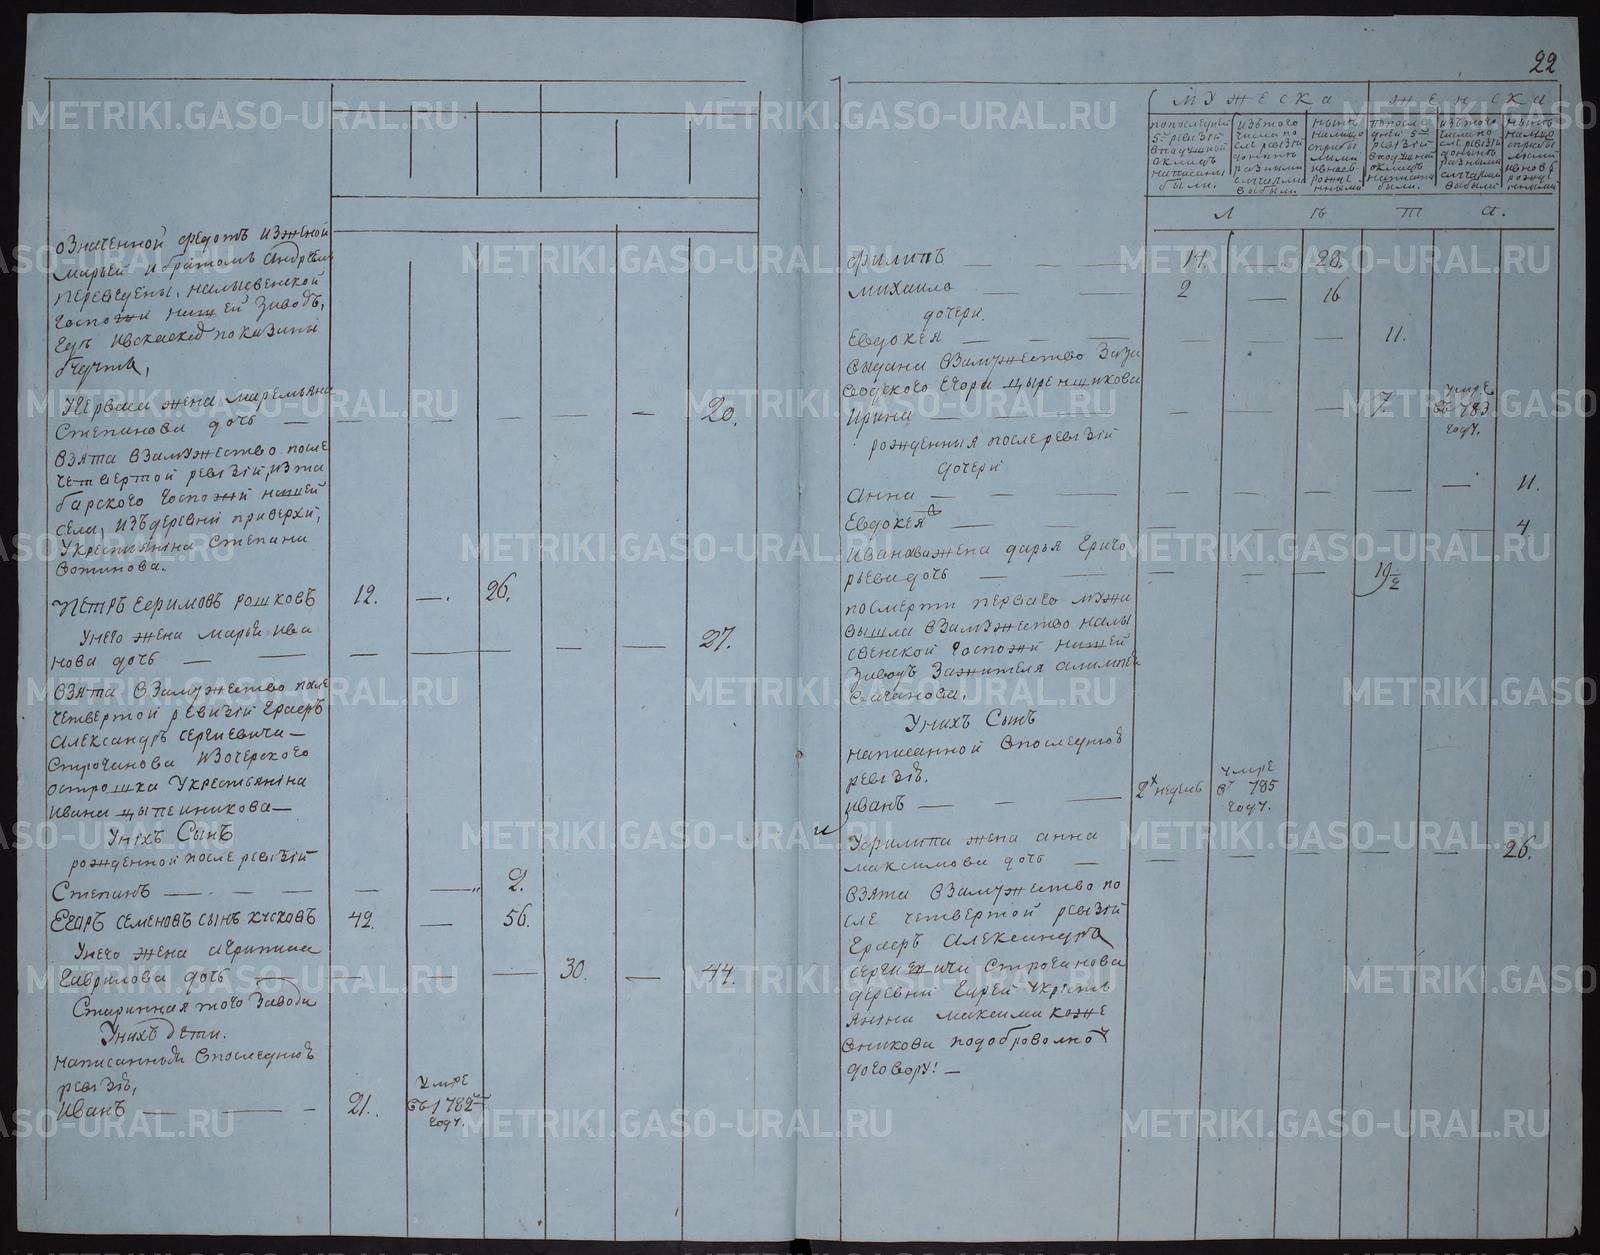 означенной федотъ изженой
марьей ибратомъ андреем
переведены, налысвенской
госпожи нашей заводъ,
гдѣ ивсказке показаны
будутъ,
Перваго жена маремьяна
Степанова дочь — — — — — — 20.
взята взамужество после
четвертой ревизіи, изта
барского госпожи нашей
села, изъ деревни приверхи,
укрестьянина степана
вотинова.
Петръ ефимовъ рошковъ 12. —. 26.
Унего жена марья ива
нова дочь — — — — — — 27.
взята взамужество после
четвертой ревизіи Графъ
Александръ сергиевича —
строганова Изочерского
острошка Укрестьянина
ивана цыпенникова —
Унихъ Сынъ
рожденной после ревизіи
Степанъ — — — — — 2.
Егаръ семеновъ сынъ кусковъ 42. — 56.
Унего жена агрипина
гаврилова дочь — — — 30. — 44.
Старинная того завода
Унихъ дети.
написанныи впоследнюю
ревизіи,
Иванъ — — — 21. умре
въ 1782м
году.
22
мужеска женска
попоследней
5й ревизіи
вподушной
окладъ
написаны
были.
изътого
числа по
сле ревизіи
донынѣ
разными
случаями
выбыли
нынѣ
налицо
сприбы
лыми
ивновь
рожде
нными
попосле
дней 5й
ревизіи
вподушной
окладъ
написаны
были.
изътого
числа по
сле ревизіи
донынѣ
разными
случаями
выбыли
нынѣ
налицо
сприбы
лыми
ивновь
рожде
нными
л ѣ т а.
филипъ — — 14. — 28.
михаила — — 2 — 16
дочери.
Евдокея — — — — — — 11.
выдана взамужество заза
водского егора
Ирина — — — — — 7. умре
въ 783
году.
рожденныя послеревизіи
дочери
Анна — — — — — — — — 11.
Евдокея — — — — — — — — 4.
Иванава жена дарья григо
рьева дочь — — — — — 19½
посмерти перваго мужа
вышла взамужество налы
свенской госпожи нашей
заводъ зажителя
Унихъ Сынъ
написанной впоследнюю
ревизіи.
иванъ — — — 2х неделъ умре
въ 785
году.
и
Уфилипа жена анна
максимова дочь — — — — — — 26.
взята взамужество по
сле четвертой ревизіи
Графъ Александра
сергиевича Строганова
деревни Укресть
янина максима коже
вникова подоброволной
договору! —
METRIKI.GASO-URAL.RU